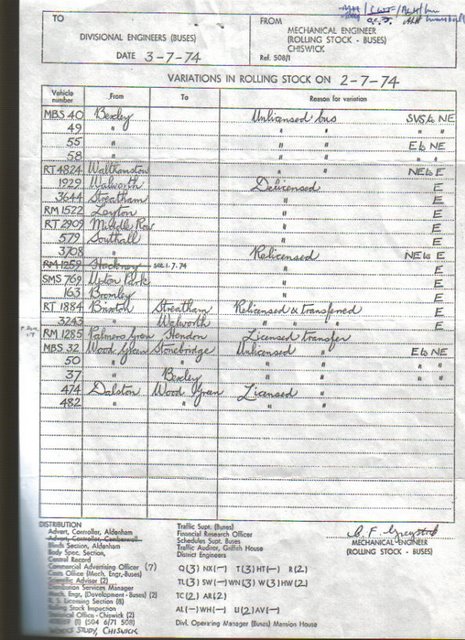 TO
DIVISIONAL ENGINEERS (BUSES)
DATE 3-7-74
FROM
MECHANICAL ENGINEER
(ROLLING STOCK - BUSES)
CHISWICK
Ref. 508/1
VARIATIONS IN ROLLING STOCK ON 2-7-74
Vehicle number From To Reason for variation
MBS 40 Bexley Unlicensed bus SVS to NE
49 " " " " "
55 " " " E to NE
58 " " " " "
RT 4824 Walthamstow " " NE to E
1929 Walworth Delicensed E
3644 Streatham " E
RM 1522 Leyton " E
RT 2909 Middle Row " E
579 Southall " E
3708 " Relicensed NE to E
RM 1259 Hackney SEE 1.7.74 " E
SMS 769 Upton Park " E
163 Bromley " E
RT 1884 Brixton Streatham Relicensed & transferred E
3243 " Walworth " " " E
RM 1285 Palmers Green Hendon Licensed transfer
MBS 32 Wood Green Stonebridge Unlicensed " E to NE
50 " " " " " "
37 " Bexley " " " "
474 Dalston Wood Green Licensed "
482 " " " "
DISTRIBUTION
Advert, Controller, Aldenham
Advert, Controller, Camberwell
Block Section, Aldenham
Body Spec. Section,
Central Record
Commercial Advertising Officer (7)
Costs Office (Mech. Engr.-Buses)
Scientific Adviser (2)
Comparison Services Manager
Mech. Engr. (Development - Buses) (2)
R. S. Licensing Section (8)
Rolling Stock Inspection
Medical Office - Chiswick (2)
(1) (594 6/71 508)
WORKS STUDY, CHISWICK
Traffic Supt. (Buses)
Financial Research Officer
Schedules Supt. Buses
Traffic Auditor, Griffith House
District Engineers
Q(3) NX(-) T(3) HT(-) R(2)
TL(3) SW(-) WN(3) W(3) HW(2)
TC(2) AR(2)
AL(-) WH(-) U(2) AV(-)
Divl. Operating Manager (Buses) Mansion House
MECHANICAL ENGINEER
(ROLLING STOCK - BUSES)